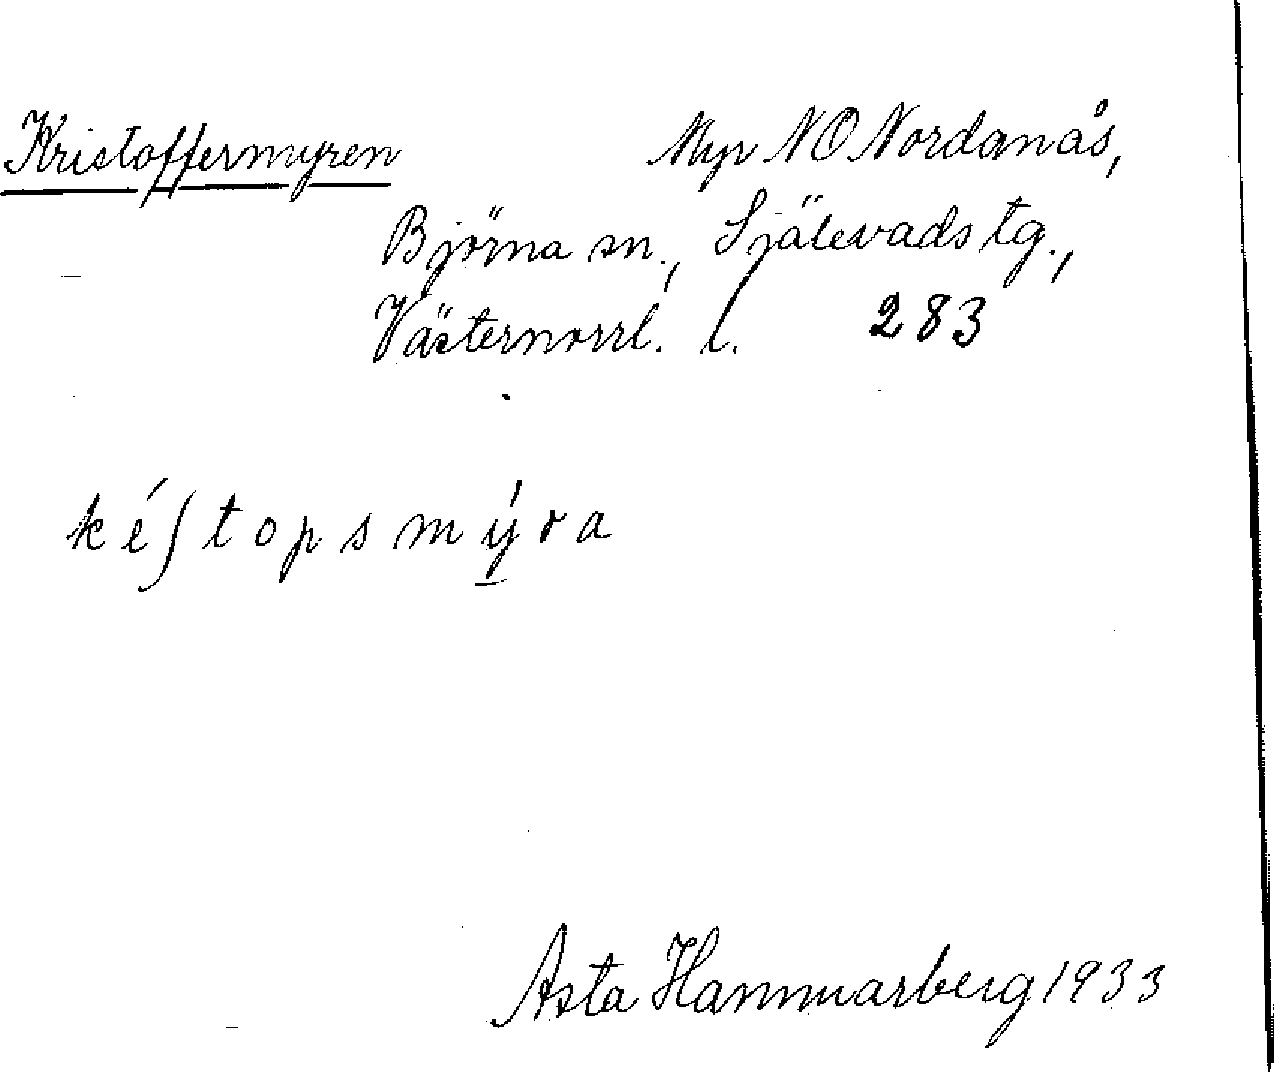 Kristoffermyren Myr NO Nordanås,
Björna sn., Själevads tg.,
Västernorrl. l. 283
kéʃtopsmý̠ra
Asta Hammarberg 1933